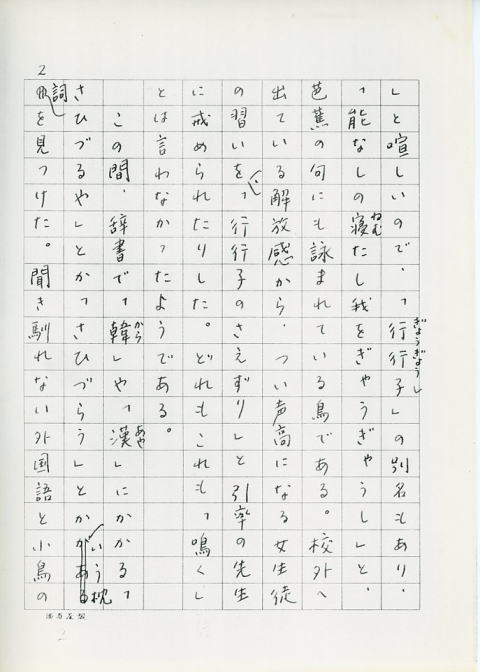 2
」と喧しいので、「行行子」の別名もあり、
ぎょうぎょうし
「能なしの寝たし我をぎやうぎやうし」と、
ねむ
芭蕉の句にも詠まれている鳥である。校外へ
出ている解放感から、つい声高になる女生徒
の習いを、「行行子のさえずり」と引率の先生
に戒められたりした。どれもこれも、「鳴く」
とは言わなかったようである。
この間、辞書で「韓」や「漢」にかかる「
から
あや
さひづるや」とか「さひづらう」とかいう枕
詞を見つけた。聞き馴れない外国語と小鳥の